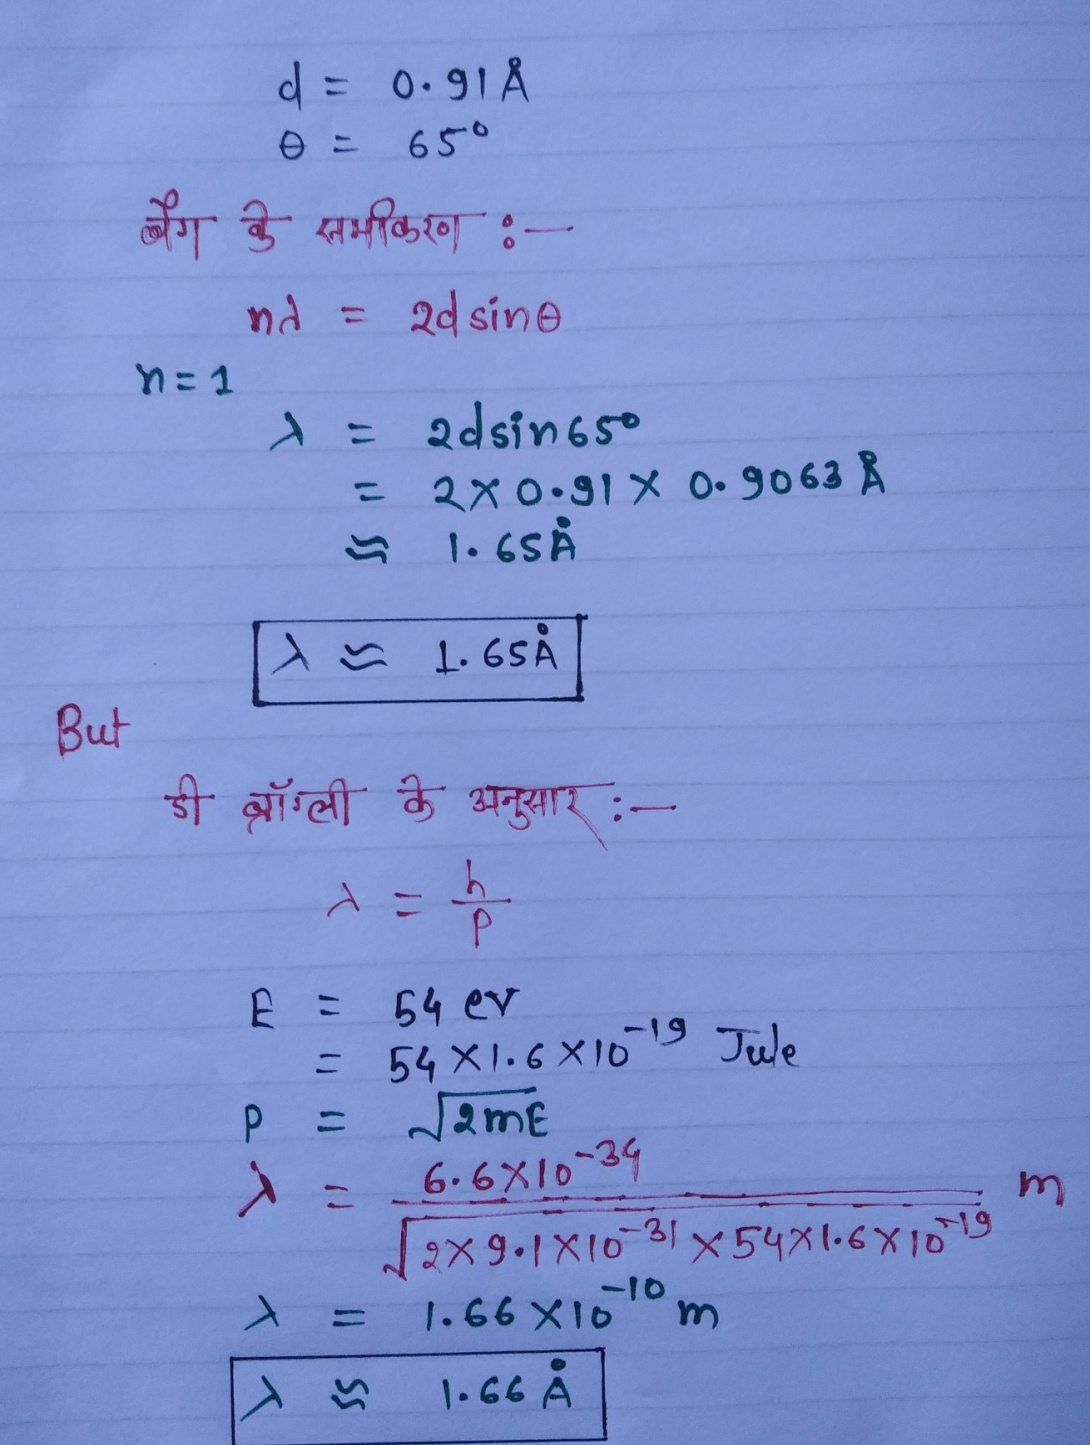 d = 0.91Å
θ = 65°
ब्रैग के समीकरण :—
nλ = 2dsinθ
n=1
λ = 2dsin65°
= 2×0.91× 0.9063 Å
≈ 1.65Å
λ ≈ 1.65Å
But
डी ब्रॉग्ली के अनुसार :—
λ = h/P
E = 54 ev
= 54×1.6×10⁻¹⁹ Jule
P = √2mE
λ = 6.6×10⁻³⁴ / √2×9.1×10⁻³¹×54×1.6×10⁻¹⁹ m
λ = 1.66×10⁻¹⁰ m
λ ≈ 1.66 Å